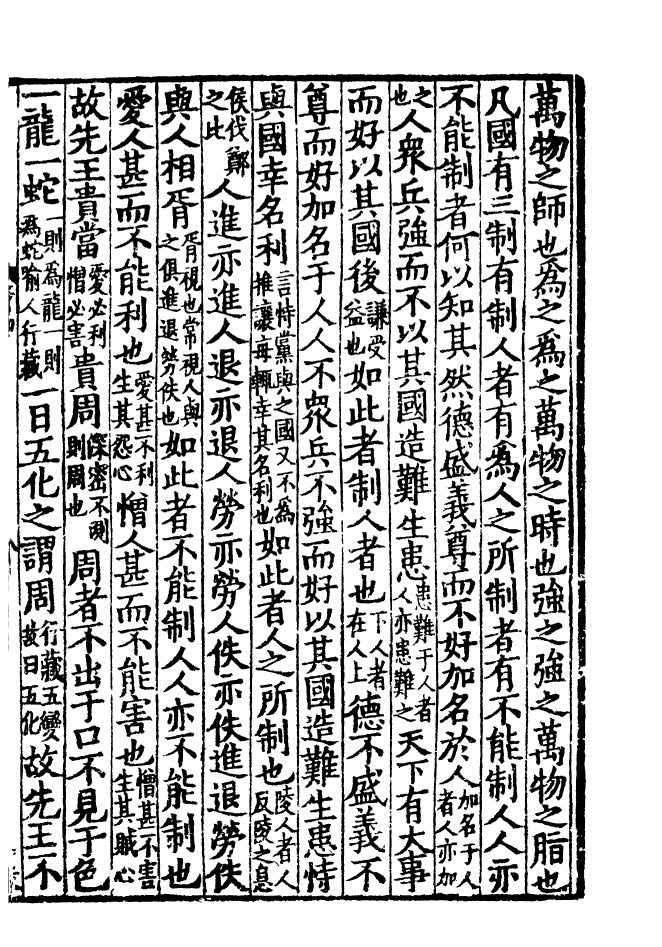 萬物之師也為之為之萬物之時也強之強之萬物之脂也
凡國有三制有制人者有為人之所制者有不能制人人亦
不能制者何以知其然德盛義尊而不好加名於人加名于人者人亦加
之也人眾兵強而不以其國造難生患患難于人者人亦患難之天下有大事
而好以其國後謙受益也如此者制人者也下人者在人上德不盛義不
尊而好加名于人人不眾兵不強而好以其國造難生患恃
與國幸名利言恃黨與之國又不為推讓每輒幸其名利也如此者人之所制也陵人者人反陵之息
侯伐鄭之比人進亦進人退亦退人勞亦勞人佚亦佚進退勞佚
與人相胥胥視也常視人與之俱進退勞佚也如此者不能制人人亦不能制也
愛人甚而不能利也愛甚不利生其怨心憎人甚而不能害也憎甚不害生其賊心
故先王貴當愛必利憎必害貴周深密不測則周也周者不出于口不見于色
一龍一蛇一則為龍一則為蛇喻人行藏一日五化之謂周行藏五變故曰五化故先王不